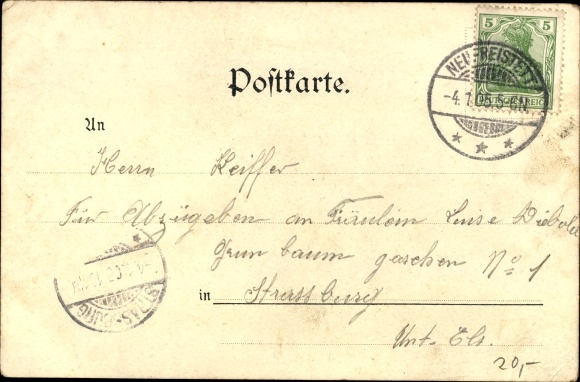 5 5
DEUTSCHES REICH
NEUFREISTETT
-4.1.05.5-6N.
Postkarte.
An
Herrn Keiffer
Für Abzügeben an Fräulein Luise Diebold
Grunbaum gaschen No 1
STRASSBURG
in Strassburg
Unt. Els.
20,-